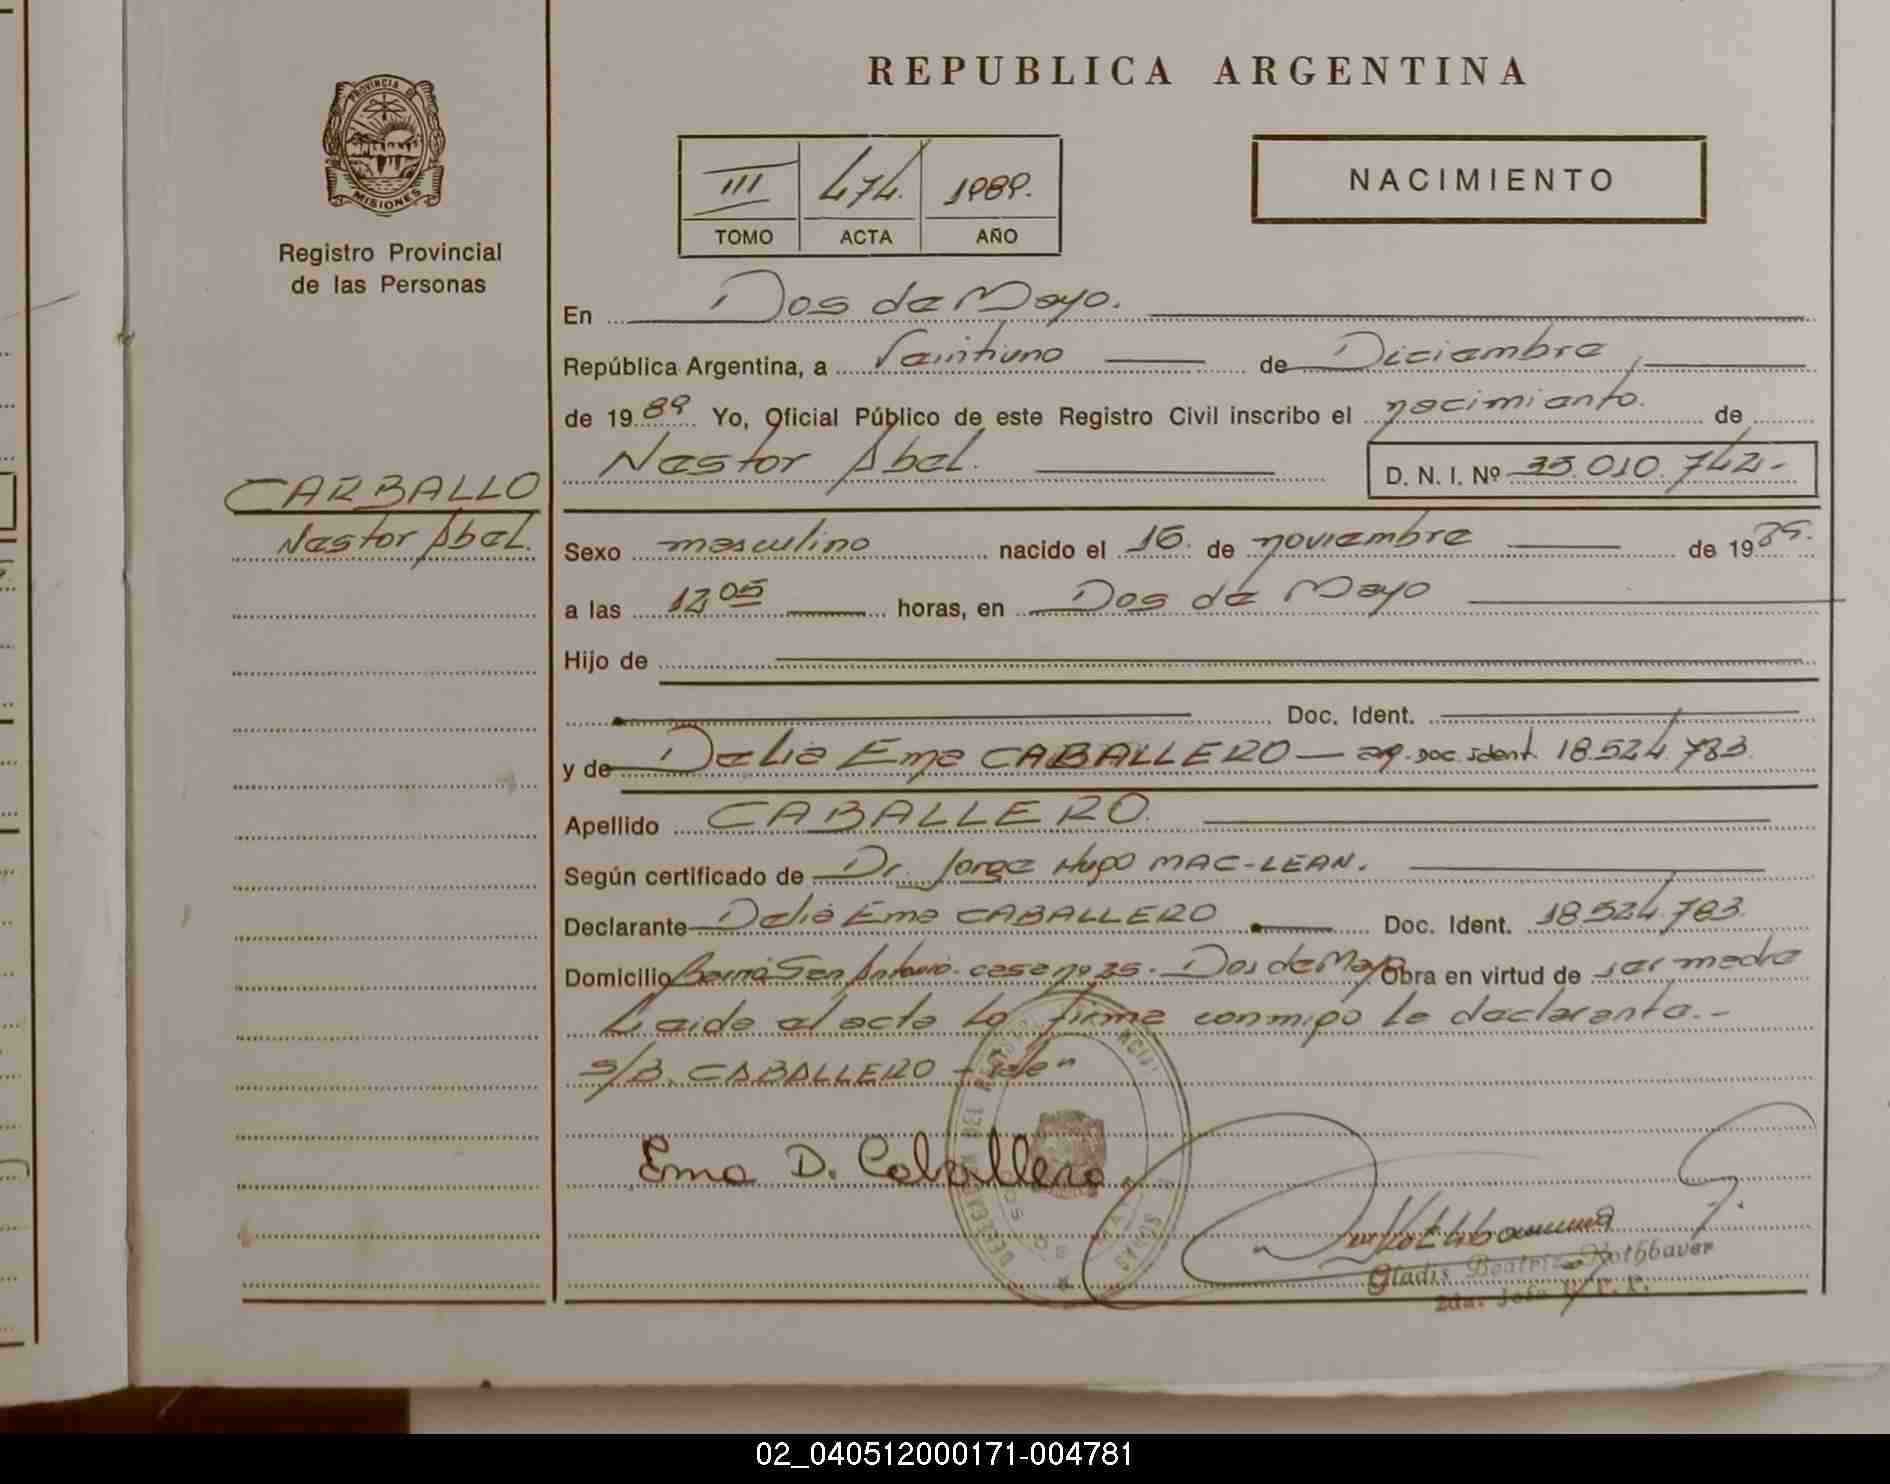 REPUBLICA ARGENTINA
PROVINCIA DE
MISIONES
Registro Provincial
de las Personas
III 474. 1989.
TOMO ACTA AÑO
NACIMIENTO
En Dos de Mayo.
República Argentina, a Veintiuno de Diciembre,
de 1989 Yo, Oficial Público de este Registro Civil inscribo el nacimiento. de
Nestor Abel. D. N. I. Nº 35.010.742-
CARBALLO
Nestor Abel.
Sexo masculino nacido el 16. de noviembre de 1989.
a las 12 05 horas, en Dos de Mayo
Hijo de
Doc. Ident.
y de Delia Ema CABALLERO — arg. Doc. ident. 18.524.783.
Apellido CABALLERO.
Según certificado de Dr. Jorge Hugo MAC-LEAN.
Declarante Delia Ema CABALLERO Doc. Ident. 18.524.783.
Domicilio Barrio San Antonio. casa nº 35. Dos de Mayo Obra en virtud de ser madre
Leida el acta la firma conmigo la declarante.-
S/B. CABALLERO - Vale"
Ema D. Caballero
Gladis Beatriz Rothbauer
2da. Jefe
02_040512000171-004781